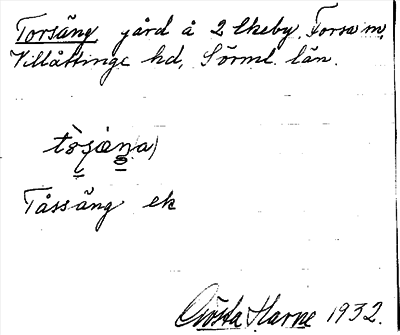 Torsäng gård å 2 Ekeby. Forsa sn.
Villåttinge hd, Sörml. län.
Tåssäng ek
Gösta Harne 1932.